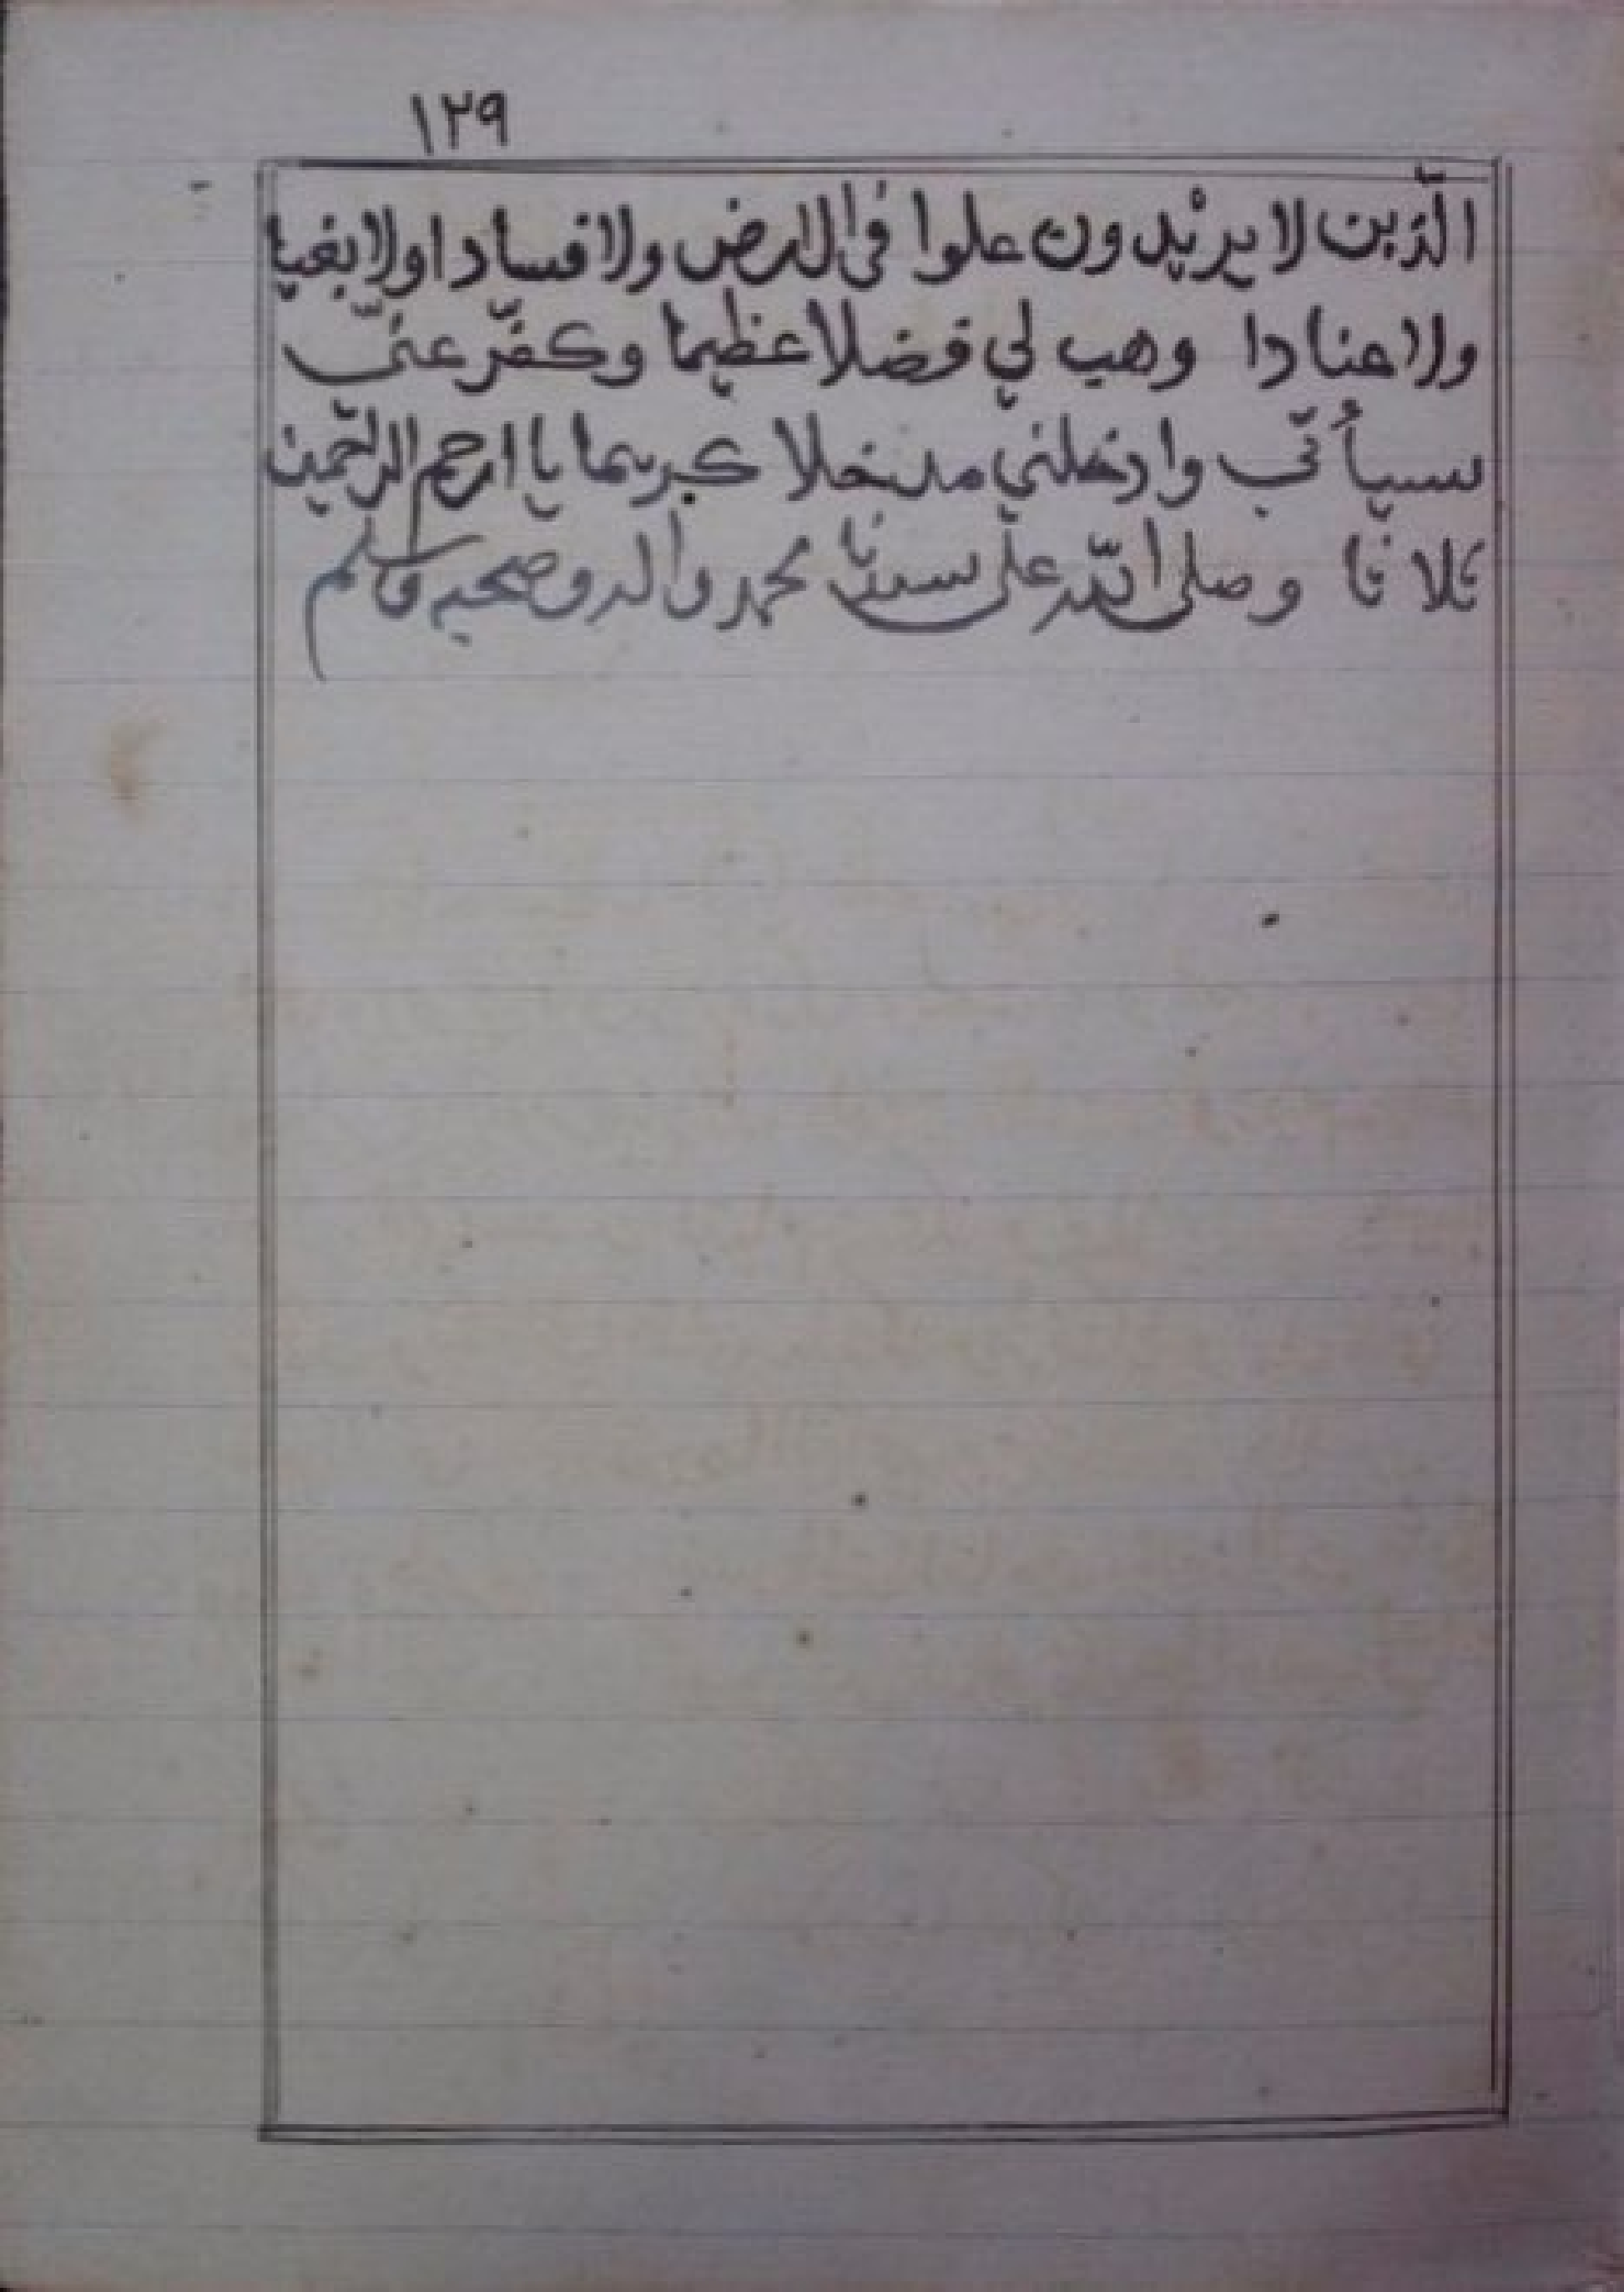 ١٢٩
الّذين لا يريدون علوا في الارض ولا فسادا ولا بغيا
ولا عنادا وهب لي فضلا عظيما وكفّر عنّي
سيأتي وادخلني مدخلا كريما يا ارحم الرّحمين
ثلاثا وصلى اللّه على سيدنا محمد واله وصحبه وسلم